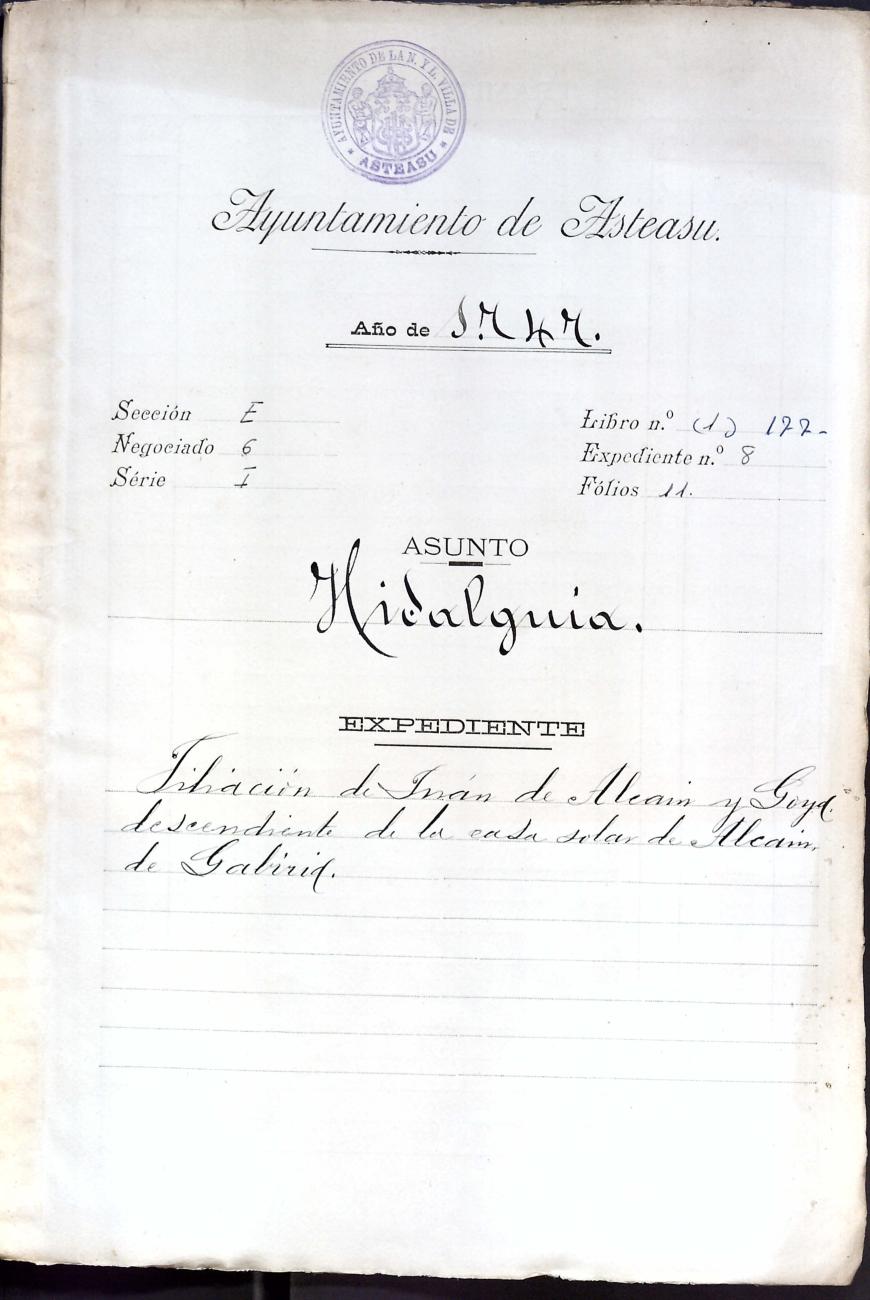 AYUNTAMIENTO DE LA N. Y L. VILLA DE
* ASTEASU *
Ayuntamiento de Asteasu.
Año de 1747.
Sección E
Negociado 6
Série I
Libro n.º (1) 177-
Expediente n.º 8
Fólios 11.
ASUNTO
Hidalguia.
EXPEDIENTE
Filiación de Juán de Alcain y
descendiente de la casa solar de Alcain,
de Gabiria.